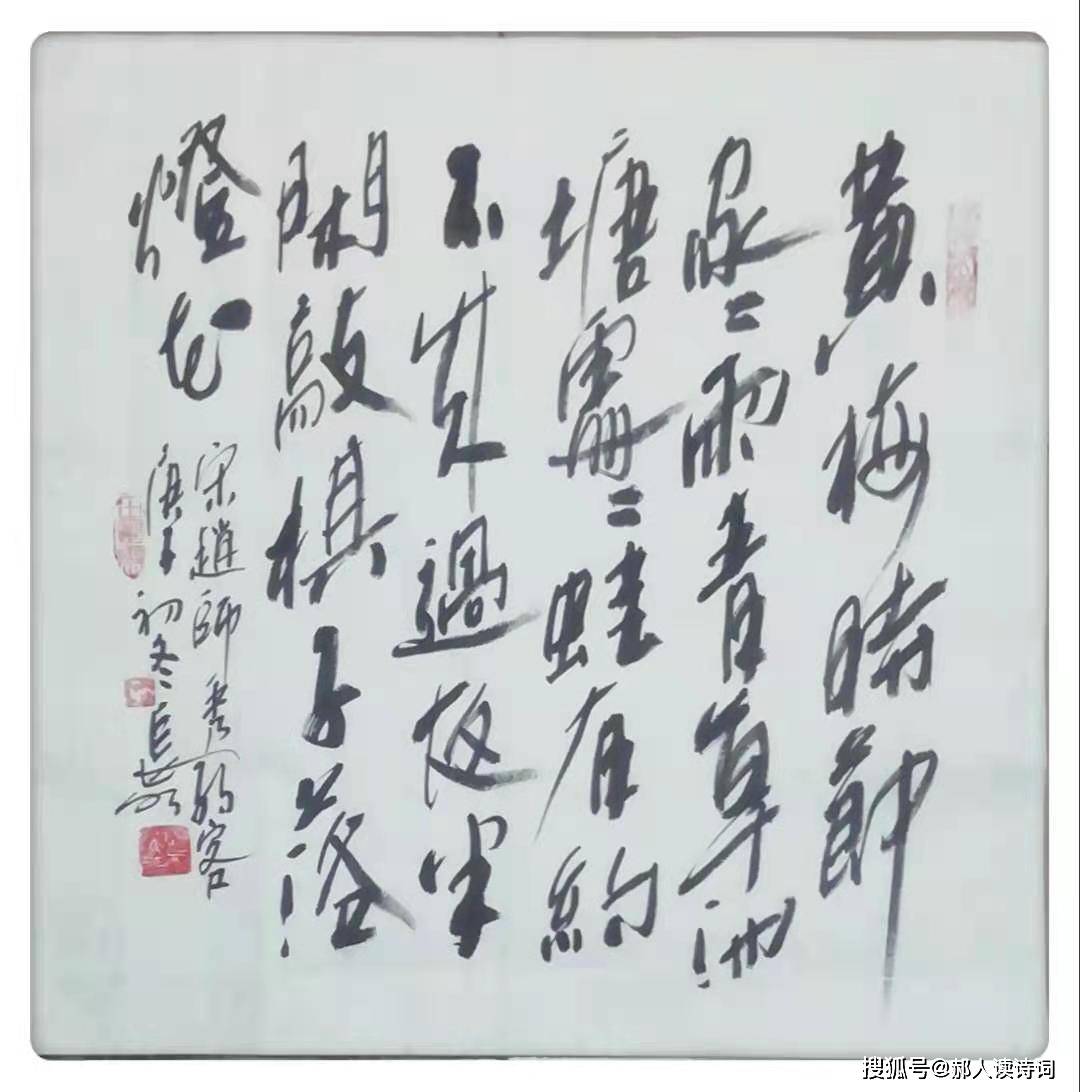 黄梅時節
家々雨青草池
塘處々蛙有約
不來過夜半
閑敲棋子落
燈花
宋趙師秀約客
庚子初冬
搜狐号@郝人读诗词